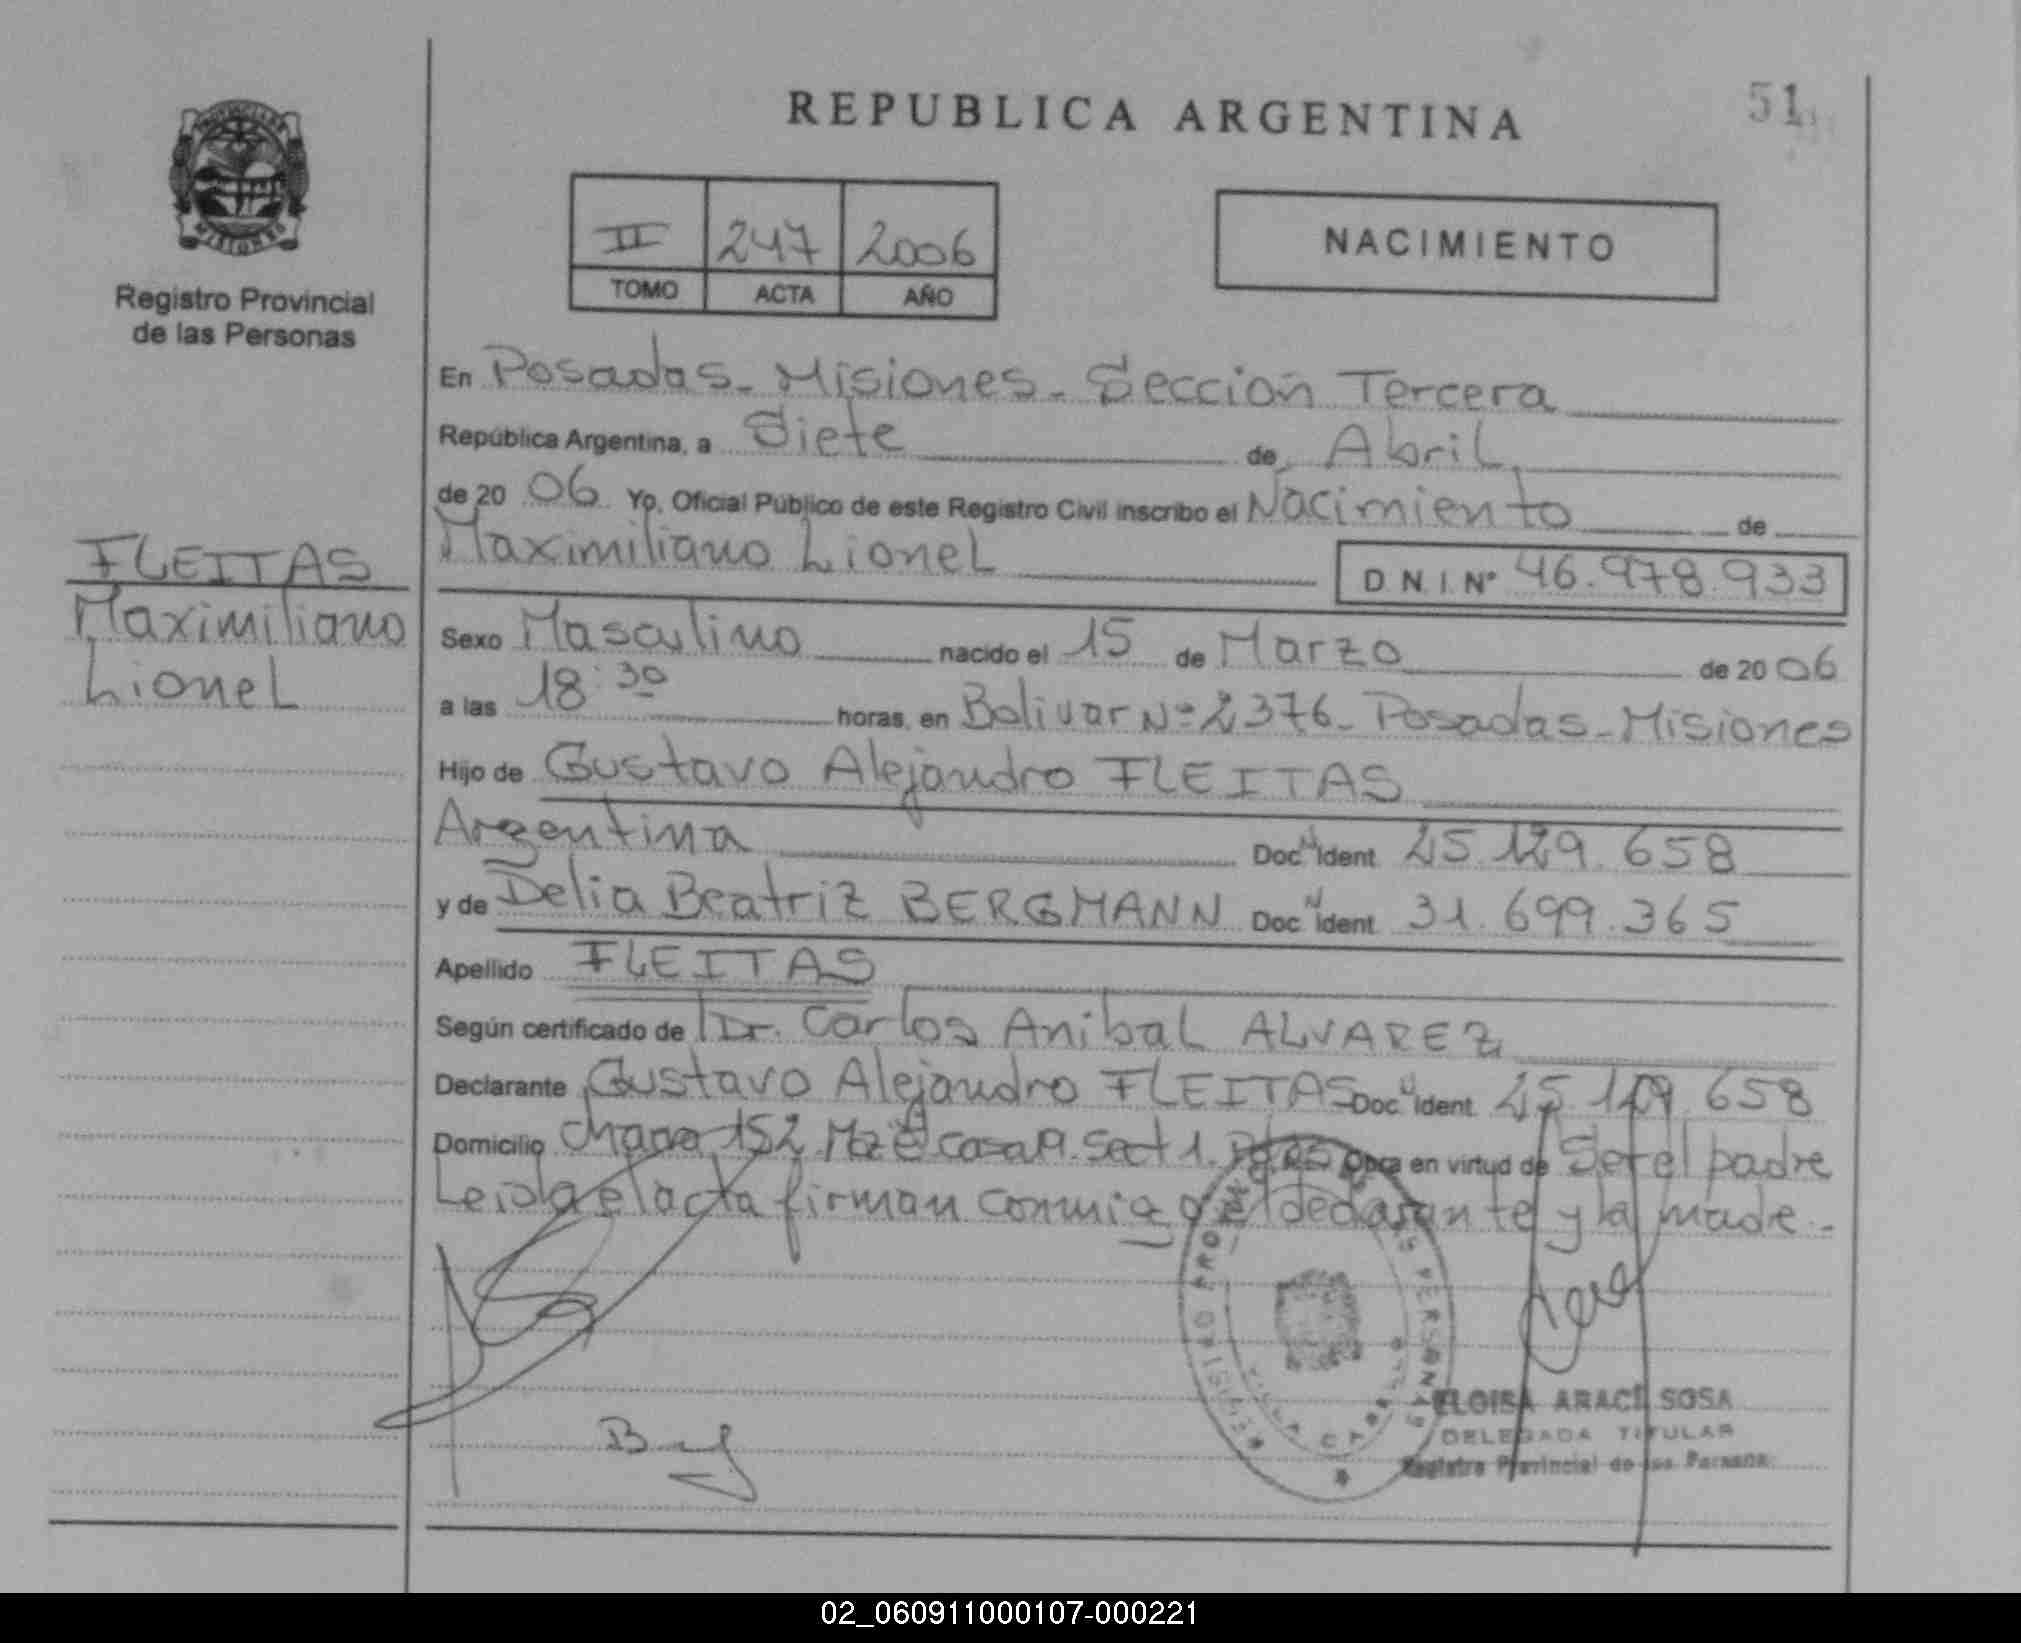 REPUBLICA ARGENTINA
51
PROVINCIA DE
MISIONES
Registro Provincial
de las Personas
II 247 2006
TOMO ACTA AÑO
NACIMIENTO
En Posadas - Misiones - Sección Tercera
República Argentina, a Siete de Abril
de 20 06 Yo, Oficial Público de este Registro Civil inscribo el Nacimiento de
Maximiliano Lionel D.N.I. Nº 46.978.933
FLEITAS
Maximiliano
Lionel
Sexo Masculino nacido el 15 de Marzo de 20 06
a las 18:30 horas, en Bolivar Nº 2376 - Posadas - Misiones
Hijo de Gustavo Alejandro FLEITAS
Argentina Doc. N Ident 25.129.658
y de Delia Beatriz BERGMANN Doc. N Ident 31.699.365
Apellido FLEITAS
Según certificado de Dr. Carlos Anibal ALVAREZ
Declarante Gustavo Alejandro FLEITAS Doc. N Ident 25.129.658
Domicilio 152 Mz casa 9. Sect 1. Obra en virtud de Ser el padre
Leida el acta firman conmigo el declarante y la madre.-
ELOISA ARACI SOSA
DELEGADA TITULAR
Registro Provincial de las Personas
02_060911000107-000221